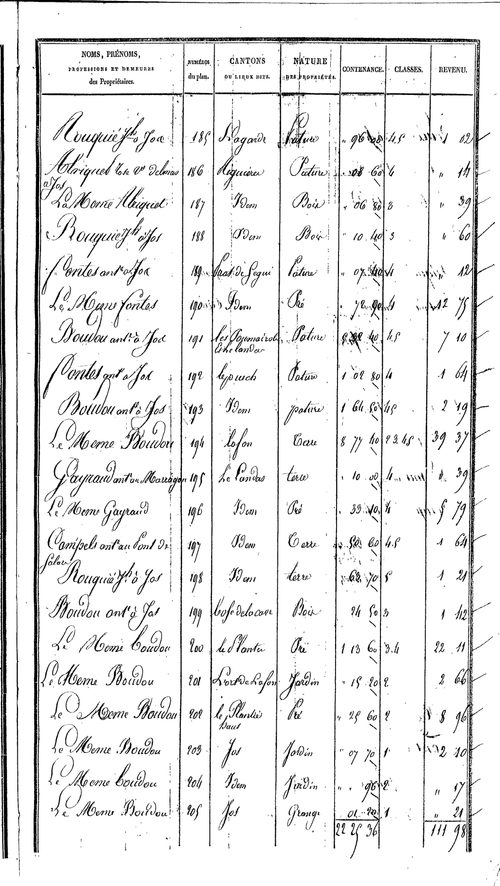 NOMS, PRÉNOMS, PROFESSIONS ET DEMEURES des Propriétaires. NUMÉROS du plan. CANTONS OU LIEUX DITS. NATURE DES PROPRIÉTÉS. CONTENANCE. CLASSES. REVENU.
Rouquié Jh à Jos 185 Lagarde Pature " 96 00 45 1 02
Aliquet 186 Riguiere Pature " 08 60 4 " 14
à Jos
Le Meme Aliquet 187 Idem Bois " 06 80 2 " 39
Rouquié Jh à Jos 188 Idem Bois " 10 40 3 " 60
Fontes ant. à Jos 189 Pature " 07 40 4 " 12
Le Meme fontes 190 Idem Pré " 72 90 4 12 75
Boudou ant. à Jos 191 Pature 40 45 7 10
Fontes ant. à Jos 192 lepuech Pature 1 02 80 4 1 64
Boudou ant. à Jos 193 Idem pature 1 64 50 45 2 19
Le Meme Boudou 194 lafon Terre 8 77 40 2 3. 45 39 37
Gayraud ant. au 195 Le Landas terre " 10 00 4 " 39
Le Meme Gayraud 196 Idem Pré " 33 10 4 5 79
Campels ant. au Pont de 197 Idem Terre 60 45 1 64
Rouquié Jh à Jos 198 Idem terre " 62 70 5 1 21
Boudou ant. à Jos 199 bosc de la cave Bois " 24 50 3 1 42
Le Meme boudou 200 le Plantié Pré 1 13 60 3.4 22 11
Le Meme Boudou 201 L'ort de Lafon Jardin " 15 20 2 2 66
Le Meme Boudou 202 le Plantié Pré " 25 60 2 8 96
Le Meme Boudou 203 Jos Jardin " 07 70 1 2 10
Le Meme boudou 204 Idem Jardin " " 96 2 " 17
Le Meme Boudou 205 Jos Grange 01 20 1 " 21
22 25 36 111 98